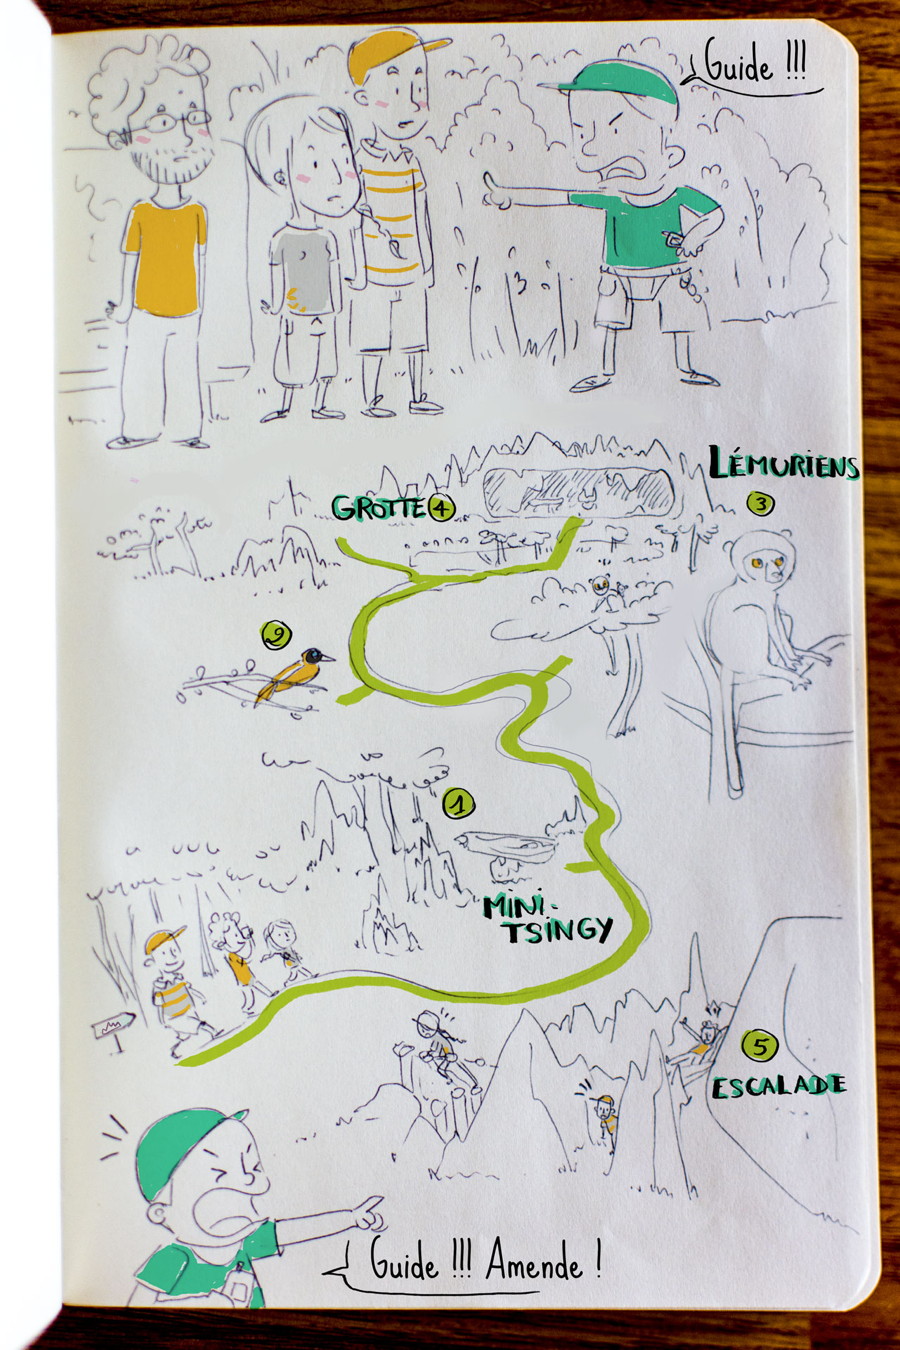 Guide !!!
LÉMURIENS
3
GROTTE 4
2
1
MINI-
TSINGY
5
ESCALADE
Guide !!! Amende !